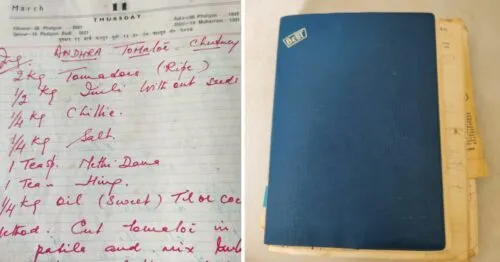 March 11
THURSDAY
Ing. ANDHRA TOMATOE CHUTNEY
2 Kg Tomadoes (Ripe)
1/2 Kg Imli Without seeds
1/4 Kg Chillie.
1/4 Kg Salt.
1 Teasp. Methi Dana
1 Tean Hing.
1/4 Kg Oil (Sweet) Til or coc
ethod. Cut tomatoe in
patila and mix